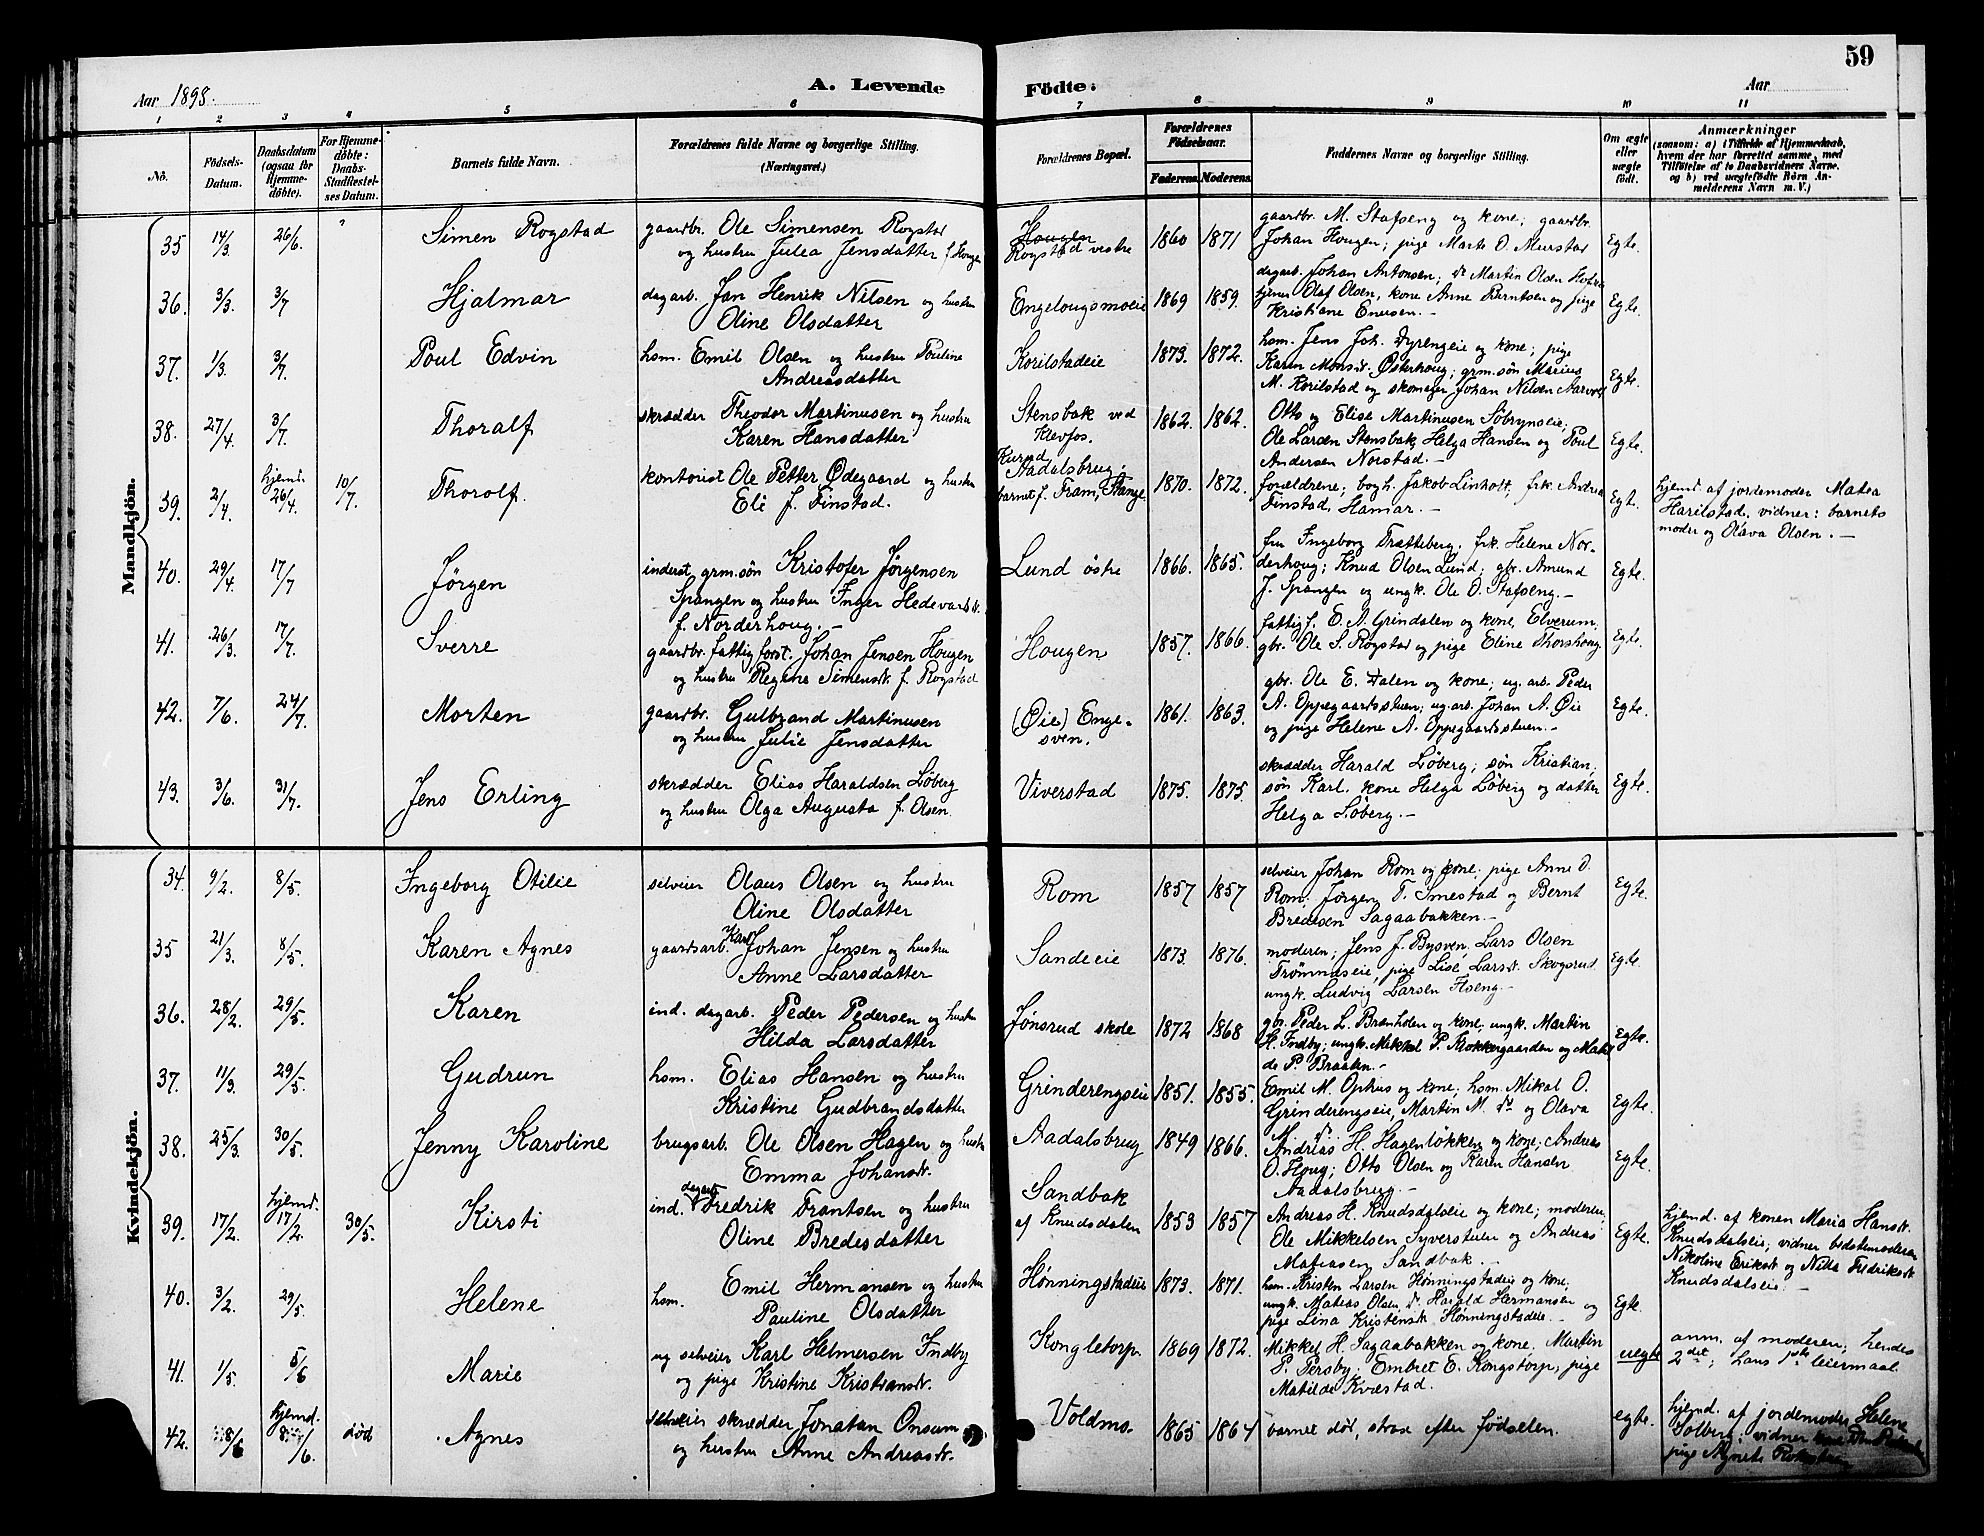 59
Aar 1898.
A. Levende Födte.
Aar
1 2 3 4 5 6 7 8 9 10 11
No.
Födsels-Datum.
Daabsdatum (ogsaa for Hjemmedöbte).
For Hjemmedöbte: Daabs-Stadfæstelses Datum.
Barnets fulde Navn.
Forældrenes fulde Navne og borgerlige Stilling. (Næringsvei.)
Forældrenes Bopæl.
Forældrenes Födselsaar.
Faderens. Moderens.
Faddernes Navne og borgerlige Stilling.
Om ægte eller uægte født.
Anmærkninger
(saasom: a) i Tilfælde af Hjemmedaab,
hvem der har forrettet samme, med
Tilföielse af to Daabsvidners Navne,
og b) ved uægtefödte Börn An-
melderens Navn m. V.)
Mandkjön.
35 14/3. 26/6. Simen Rogstad
gaardbr. Ole Simensen Rogstad
og hustru Julea Jensdatter f. Hougen
Hougen
Rogstad vestre
1860 1871
gaardbr. M. Stafseng og kone; gaardbr.
Johan Hougen; pige Marte O. Murstad
Egte.
36. 3/3. 3/7 Hjalmar
dagarb. Jan Henrik Nilsen og hustru
Oline Olsdatter
Engelougsmoeie
1869 1859.
dagarb. Johan Antonsen; do Martin Olsen
tjener Olaf Olsen, kone Anne Berntsen og pige
Kristiane Enusen.
Egte.
37. 1/3. 3/7. Poul Edvin
hsm. Emil Olsen og hustru Pouline
Andreasdatter
Korilstadeie
1873. 1872.
hsm. Jens Joh. Dyrengeie og kone; pige
Karen Monsdt. Østerhoug; grm.søn Marius
M. Korilstad og skomager Johan Nilsen
Egte.
38. 27/4. 3/7. Thoralf
skrædder Theodor Martinusen og hustru
Karen Hansdatter
Stensbak ved
Klevfos.
1862. 1862.
Otto og Elise Martinusen Söbrynseie;
Ole Larsen Stensbak, Helga Hansen og Poul
Andersen Norstad.
Egte.
39. 2/4. hjemd. 26/4. 10/7. Thorolf.
kontorist Ole Petter Ödegaard og hustru
Eli f. Finstad.
Kurud
Aadalsbrug;
barnet f. Fram, Stange
1870. 1872.
forældrene; bogh. Jakob Linholt, frk. Andrea
Finstad, Hamar.
Egte.
hjemd. af jordemoder Matea
Harilstad, vidner: barnets
moder og Olava Olsen.
40. 29/4. 17/7 Jörgen
inderst, grm.sön Kristofer Jörgensen
Spangen og hustru Inger Hedevardsdt.
f. Norderhoug.
Lund östre
1866. 1865.
fru Ingeborg Trætteberg, frk. Helene Nor-
derhoug; Knud Olsen Lund; gbr. Amund
J. Spangen og ungk. Ole O. Stafseng.
Egte.
41. 26/3. 17/7. Sverre
gaardbr. fattigforst. Johan Jensen Hougen
og hustru Regine Simensdt. f. Rogstad
Hougen
1857. 1866.
fattigf. E. A. Grindalen og kone, Elverum.
gbr. Ole S. Rogstad og pige Eline Thorshoug
Egte.
42. 7/6. 24/7. Morten
gaardbr. Gulbrand Martinusen
og hustru Julie Jensdatter
(Öie) Enge-
sven.
1861. 1863.
gbr. Ole E. Dalen og kone; ug. arb. Peder
A. Oppegaardsstuen; ug. arb. Johan A. Öie
og pige Helene A. Oppegaardsstuen.
Egte.
43. 3/6. 31/7. Jens Erling
skrædder Elias Haraldsen Löberg
og hustru Olga Augusta f. Olsen.
Viverstad
1875. 1875.
skrædder Harald Löberg; søn Kristian,
søn Karl, kone Helga Löberg og datter
Helga Löberg.
Egte.
Kvindekjön.
34. 9/2. 8/5. Ingeborg Otilie
selveier Olaus Olsen og hustru
Oline Olsdatter
Rom
1857 1857
selveier Johan Rom og kone; pige Anne O.
Rom; Jörgen T. Smestad og Bernt
Bredesen Sagaabakken.
Egte.
35 21/3. 8/5. Karen Agnes
gaardsarb. Karl Johan Jensen og hustru
Anne Larsdatter
Sandeeie
1873. 1876.
moderen; Jens J. Bysven, Lars Olsen
Trömnæseie, pige Lise Larsdt. Skogsrud
ungk. Ludvig Larsen Aseng.
Egte.
36. 28/2. 29/5. Karen
ind. dagarb. Peder Pedersen og hustru
Hilda Larsdatter
Jönsrud skole
1872 1868
gbr. Peder L. Brænholen og kone; ungk. Martin
H. Indby; ungk. Mikkel P. Klokkergaarden og Matil-
de P. Braaten.
Egte.
37. 11/3. 29/5. Gudrun
hsm. Elias Hansen og hustru
Kristine Gudbrandsdatter
Grinderengseie
1851. 1855.
Emil M. Ophus og kone; hsm. Mikal O.
Grinderengseie, Martin M. do og Olava
M. do.
Egte.
38. 25/3. 30/5. Jenny Karoline
brugsarb. Ole Olsen Hagen og hustru
Emma Johansdt.
Aadalsbrug
1849 1866.
Andreas H. Hagenlökken og kone; Andreas
O. Houg; Otto Olsen og Karen Hansen
Aadalsbrug.
Egte.
39. 17/2. hjemd. 17/2. 30/5. Kirsti
ind. dagarb. Fredrik Frantsen og hustru
Oline Bredesdatter
Sandbak
af Knudsdalen
1853 1857
Andreas H. Knudsdalseie og kone; moderen;
Ole Mikkelsen Syverstuen og Andreas
Matiasen Sandbak.
Egte.
hjemd. af konen Maria Hansdt.
Knudsdalseie; vidner bedstemoderen
Nikoline Eriksdt og Nilda Fredriksdt
Knudsdalseie.
40. 3/2. 29/5. Helene
hsm. Emil Hermansen og hustru
Pauline Olsdatter
Hönningstadeie
1873. 1871.
hsm. Kristen Larsen Hönningstadeie og kone,
ungk. Matias Olsen, do Harald Hermansen og
pige Lina Kristensdt. Hönningstadeie.
Egte.
41. 1/5. 5/6 Marie
ug selveier Karl Helmersen Indby
og pige Kristine Kristiansdt.
Kongletorp.
1869 1872.
Mikkel H. Sagaabakken og kone, Martin
P. Persby, Embret E. Kongstorp, pige
Matilde Kvæstad.
uegte
anm. af moderen; hendes
2det; hans 1ste leiermaal.
42. 8/6 hjemd. 8/6. död Agnes
selveier skrædder Jonatan Onsum
og hustru Anne Andreasdt.
Voldmo.
1865 1864
barnet död, strax efter fødselen.
egte.
hjemd. af jordemoder Helene
Solberg; vidner
pige Agnete